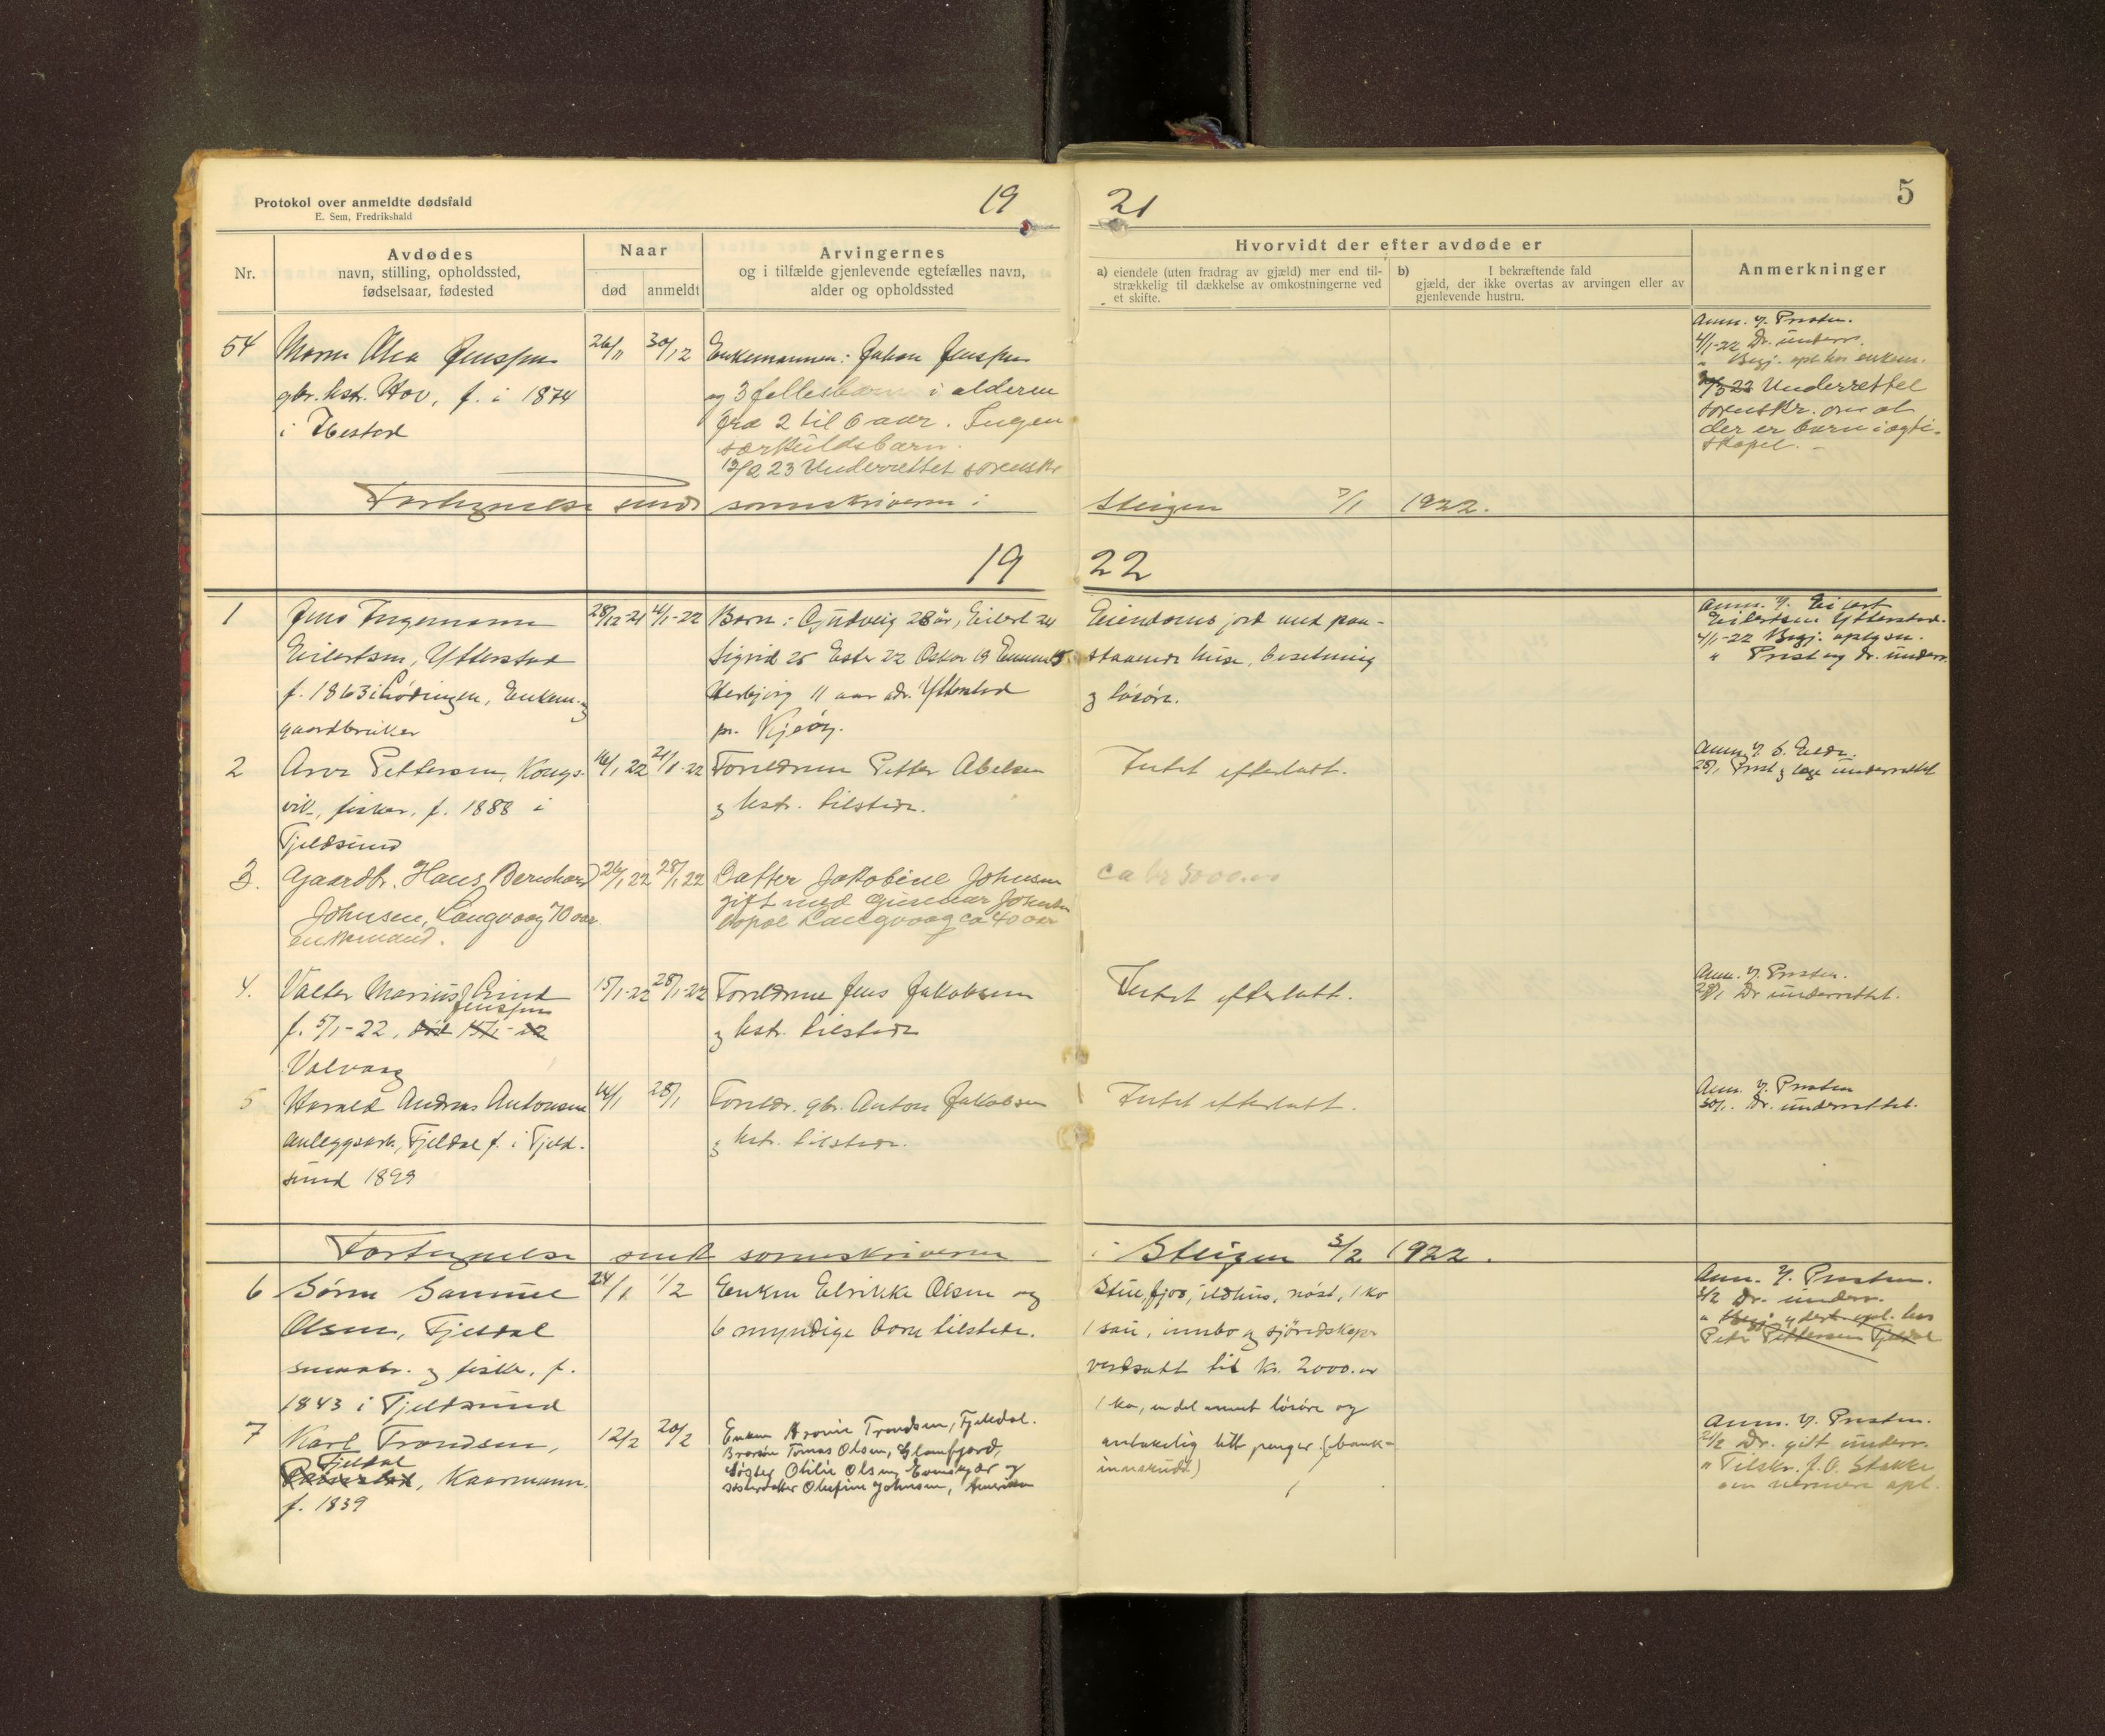 Protokol over anmeldte dødsfald
E. Sem, Fredrikshald
19 21
5
Nr.
Avdødes
navn, stilling, opholdssted,
fødselsaar, fødested
Naar
død
anmeldt
Arvingernes
og i tilfælde gjenlevende egtefælles navn,
alder og opholdssted
Hvorvidt der efter avdøde er
a) eiendele (uten fradrag av gjæld) mer end til-
strækkelig til dækkelse av omkostningerne ved
et skifte.
b) I bekræftende fald
gjæld, der ikke overtas av arvingen eller av
gjenlevende hustru.
Anmerkninger
54
Jenssen
gbr. hst. Hov, f. i 1874
i Ibestad
26/11
30/12
Enkemannen: Johan Jenssen
og 3 fellesbarn i alderen
fra 2 til 6 aar. Ingen
særkuldsbarn.
12/2 23 Underrettet sorenskr
Anm. v. Presten.
4/1-22 Dr. underr.
" Begj. opl. hos enkem.
Underrettet
sorenskr. om at
der er barn i egte-
skapet. -
Fortegnelse sendt sorenskriveren i Steigen 3/1 1922.
19 22
1
Jens Ingemann
Eilertsen, Ytterstad
f. 1863 i Lødingen, Enkem. og
gaardbruker
28/12-21
4/1-22
Barn: Gudveig 28 år, Eilert 24
Sigrid 25 Ester 22 Oskar 19 Emma 15
Herbjørg 11 aar adr. Ytterstad
pr. Kjeøy.
Eiendoms jord med paa-
staaende huse, besetning
og løsøre.
Anm. v. Eilert
Eilertsen Ytterstad.
4/1-22 Begj. oplysn.
" Prest og Dr. underr.
2
Arne Pettersen, Kongs-
vik, fisker, f. 1888 i
Tjeldsund
16/1 22
21/1-22
Foreldrene Petter Abelsen
og hst. tilstede.
Intet efterlatt.
25/1 Prest og læge underrettet
3.
Gaardbr. Hans Bernhard
Johnsen, Langvaag 70 aar
enkemand.
26/1 22
28/1 22
Datter Jakobine Johnsen
gift med Gunnar Johnsen
bopæl Langvaag ca 40 aar
ca kr 5000.00
4.
Valter Marius Eind
Jenssen
f. 5/1-22, død 15/1-22
Valvaag
15/1-22
28/1-22
Foreldrene Jens Jakobsen
og hst. tilstede
Intet efterlatt.
Anm. v. Presten.
28/1 Dr underrettet.
5
Harald Andreas Antonsen
anleggsarb, Fjeldal f. i Tjeld-
sund 1899
14/1
28/1
Foreldr. gbr. Anton Jakobsen
og hst. tilstede.
Intet efterlatt.
Anm. v. Presten
30/1. Dr. underrettet.
Fortegnelse sendt sorenskriveren i Steigen 3/2 1922.
6
Søren Samuel
Olsen, Fjeldal
smaabr. og fisker, f.
1843 i Tjeldsund
24/1
1/2
Enken Elrikke Olsen og
6 myndige barn tilstede.
Stue, fjøs, ildhus, nøst, 1 ko
1 sau, innbo og sjøredskaper
verdsatt til Kr. 2000.00
Anm. v. Presten.
3/2 Dr. underr.
Petter Pettersen Fjeldal
7
Karl Trondsen,
Fjeldal
, Kaarmann
f. 1839
12/2
20/2
Enken Hrovie Trondsen, Fjeldal.
Brorsøn Tomas Olsen, Glomfjord,
søster Otilie Olsen, Evenskjær og
søsterdatter Olufine Johnsen, Amerika
1 ko, en del annet løsøre og
antakelig litt penger (bank-
innskudd)
Anm. v. Presten.
21/2 Dr. gitt underr.
" Tilskr. J. O. Stakke
om nærmere opl.